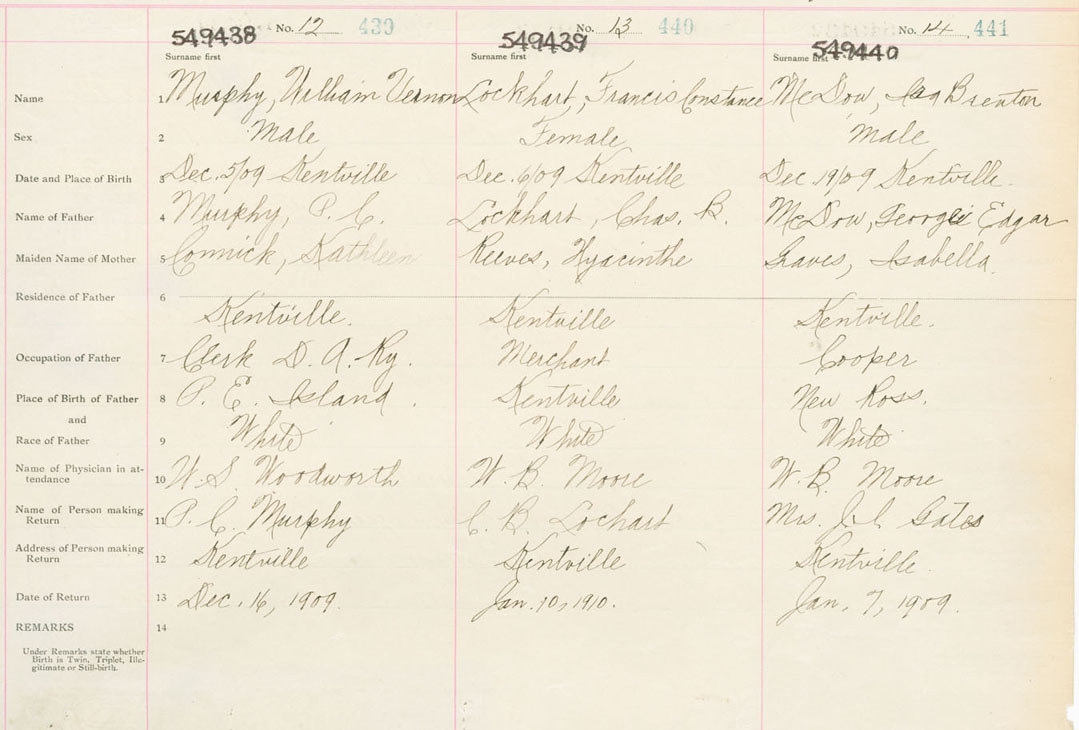 549438 No. 12 439
549439 No. 13 440
549440 No. 14 441
Surname first Surname first Surname first
Name 1 Murphy, William Vernon Lockhart, Francis Constance McDow, Brenton
Sex 2 Male Female Male
Date and Place of Birth 3 Dec. 5/09 Kentville Dec. 6/09 Kentville Dec. 19/09 Kentville.
Name of Father 4 Murphy, P. C. Lockhart, Chas. B. McDow, George Edgar
Maiden Name of Mother 5 Connick, Kathleen Reeves, Hyacinthe Graves, Isabella.
Residence of Father 6 Kentville. Kentville Kentville.
Occupation of Father 7 Clerk D. A. Ry. Merchant Cooper
Place of Birth of Father 8 P. E. Island. Kentville New Ross.
and
Race of Father 9 White White White
Name of Physician in at-
tendance 10 W. S. Woodworth W. B. Moore W. B. Moore
Name of Person making
Return 11 P. C. Murphy C. B. Lochart Mrs. Gates
Address of Person making
Return 12 Kentville Kentville Kentville.
Date of Return 13 Dec. 16, 1909. Jan. 10, 1910. Jan. 7, 1909.
REMARKS 14
Under Remarks state whether
Birth is Twin, Triplet, Ille-
gitimate or Still-birth.